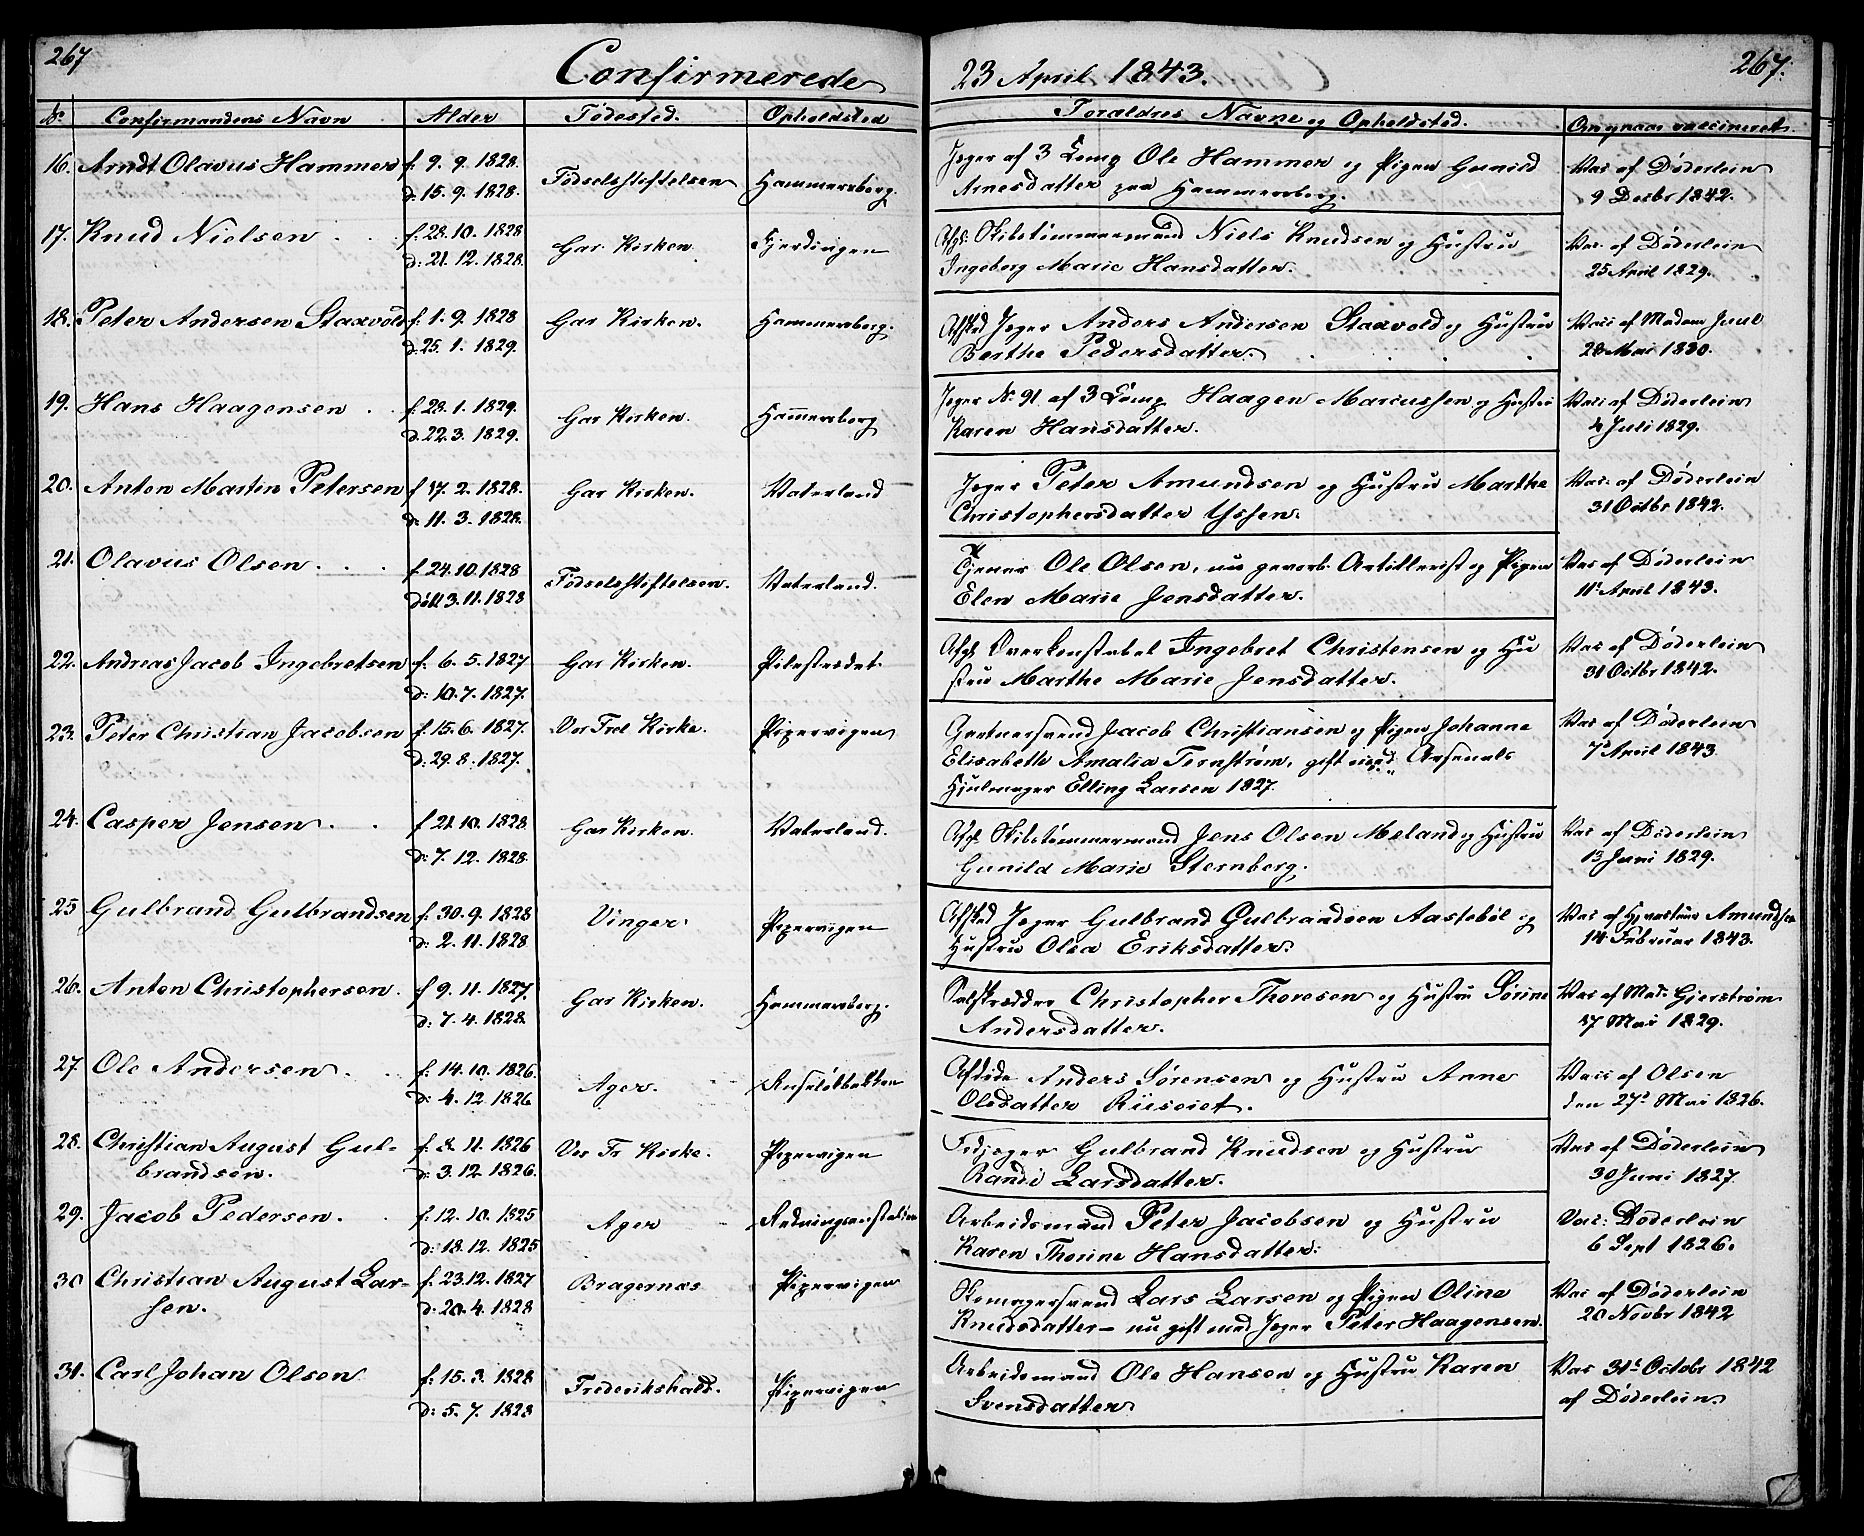 267
Confirmerede
23 April 1843.
267.
No Confirmandens Navn Alder Fødested. Opholdsted Forældres Navne og Opholdsted. Om og naar vaccineret.
16. Arndt Olavus Hammer f. 9. 9. 1828. Fødselsstiftelsen Hammersberg. Jeger af 3 Comp Ole Hammer og Pigen Gunild Vac af Døderlein
d. 15. 9. 1828. Arnesdatter paa Hammersberg. 9 Decbr 1842.
17. Knud Nielsen f. 28. 10. 1828 Gar Kirken. Fjerdingen Afsk. Skibstømmermand Niels Knudsen og Hustru Vac. af Døderlein
d: 21. 12. 1828. Ingeborg Marie Hansdatter. 25 April 1829.
18. Peter Andersen Staxvold f. 1. 9. 1828 Gar Kirken. Hammersberg. Afsked Jeger Anders Andersen Staxvold og Hustru Vacc af Madam Juul
d. 25. 1. 1829. Berthe Pedersdatter. 28 Mai 1830.
19. Hans Haagensen f. 28. 1. 1829. Gar Kirken. Hammersborg Jeger No 91 af 3 Comp Haagen Marcussen og Hustru Vacc af Døderlein
d. 22. 3. 1829. Karen Hansdatter. 4 Juli 1829.
20. Anton Martin Petersen f 17. 2. 1828. Gar Kirken. Vaterland Jeger Peter Amundsen og Hustru Marthe Vac. af Døderlein
d. 11. 3. 1828. Christophersdatter Ussen. 31 Octbr 1842.
21. Olavus Olsen f 24. 10. 1828 Fødselsstiftelsen. Vaterland. Tjener Ole Olsen, nu gevorb. Artillerist og Pigen Vac af Døderlein
døbt 3. 11. 1828 Elen Marie Jensdatter. 11 April 1843.
22. Andreas Jacob Ingebretsen f. 6. 5. 1827 Gar Kirken. Pilestrædet. Afsk Overkonstabel Ingebret Christensen og Hu Vac af Døderlein
d: 10. 7. 1827. stru Marthe Marie Jensdatter. 31 Octbr 1842.
23. Peter Christian Jacobsen f. 15. 6. 1827. Vor Frel Kirke. Pipervigen Gartnersvend Jacob Christiansen og Pigen Johanne Vac af Døderlein
d: 29. 8. 1827. Elisabeth Amalia Ternstrøm, gift med Arsenals 7de April 1843
Hjulmager Elling Larsen 1827.
24. Casper Jensen f 21. 10. 1828. Gar Kirken. Vaterland. Afsk Skibstømmermand Jens Olsen Meland og Hustru Vac af Døderlein
d: 7. 12. 1828. Gunild Marie Sternberg. 13 Juni 1829.
25 Gulbrand Gulbrandsen f. 30. 9. 1828 Vinger Pipervigen Afsked Jeger Gulbrand Gulbrandsen Aastebøl og Vac af Amundsen
d: 2. 11. 1828 Hustru Olea Eriksdatter. 14 Februar 1843.
26. Anton Christophersen. f 9. 11. 1827. Gar Kirken. Hammersberg. Christopher Thoresen og Hustru Sørine Vac af Mad. Gjerstrøm
d: 7. 4. 1828. Andersdatter. 17 Mai 1829.
27. Ole Andersen. f. 14. 10. 1826. Ager. Ruseløkbakken Afdøde Anders Sørensen og Hustru Anne Vacc af Olsen
d: 4. 12. 1826 Olsdatter Ruseiet. den 27de Mai 1826.
28. Christian August Gul- f. 8. 11. 1826 Vor Fr Kirke. Pipervigen Gulbrand Knudsen og Hustru Vac af Døderlein
brandsen. d: 3. 12. 1826. Randi Larsdatter. 30 Juni 1827.
29. Jacob Pedersen. f. 12. 10. 1825 Ager Redningsanstalten Arbeidsmand Peter Jacobsen og Hustru Vac: Døderlein
d: 18. 12. 1825 Karen Thorine Hansdatter: 6 Sept 1826.
30 Christian August Lar- f. 23. 12. 1827 Bragernæs Pipervigen Skomagersvend Lars Larsen og Pigen Oline Vac af Døderlein
sen. d: 20. 4. 1828 Knudsdatter - nu gift med Jeger Peter Haagensen. 20 Novbr 1842
31. Carl Johan Olsen f. 15. 3. 1828 Frederikshald. Pipervigen Arbeidsmand Ole Hansen og Hustru Karen Vac 31te Octobr 1842
d: 5. 7. 1828 Svensdatter af Døderlein.